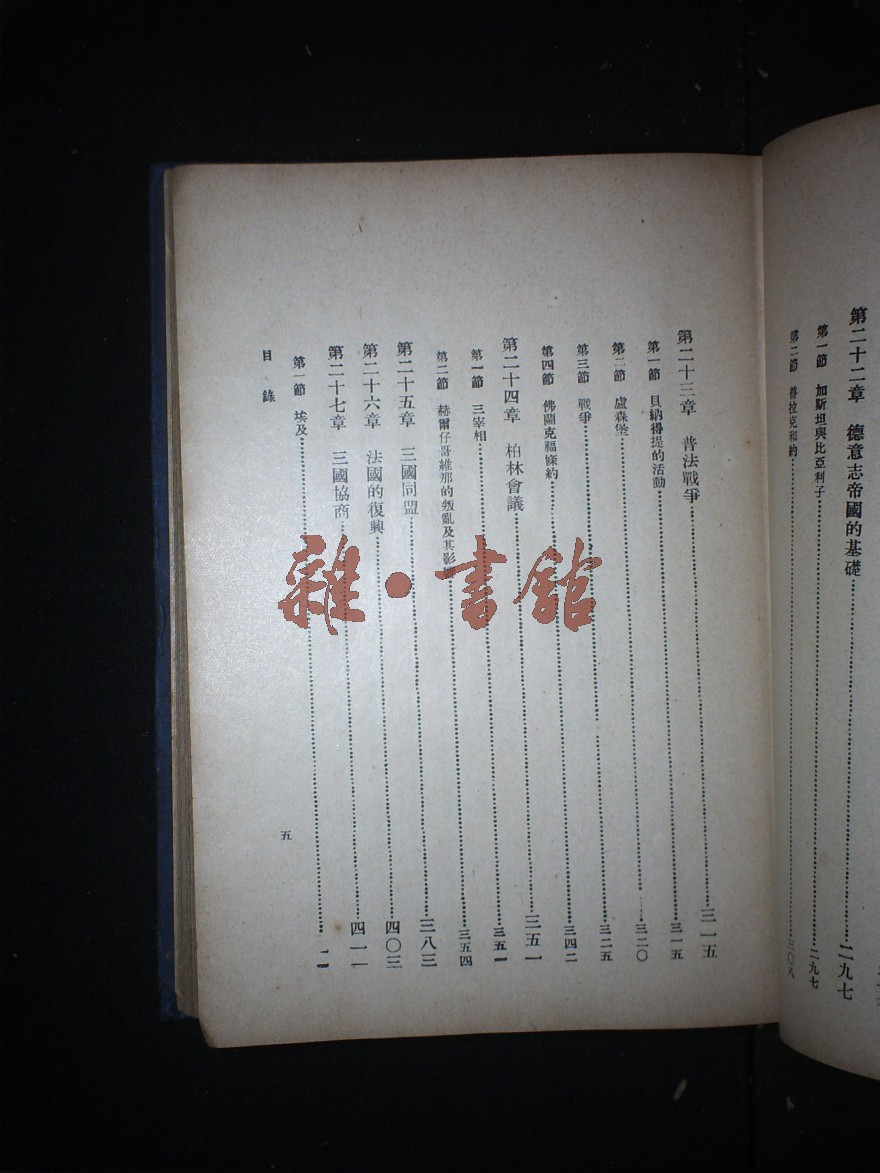 第二十二章 德意志帝國的基礎……二九七
第一節 加斯坦與比亞利子……二九七
第二節 普拉克和約……三〇八
第二十三章 普法戰爭……三一五
第一節 貝納得提的活動……三一五
第二節 盧森堡……三二〇
第三節 戰爭……三二五
第四節 佛蘭克福條約……三四二
第二十四章 柏林會議……三五一
第一節 三宰相……三五一
第二節 赫爾仔哥維那的叛亂及其影……三五四
第二十五章 三國同盟……三八三
第二十六章 法國的復興……四〇三
第二十七章 三國協商……四一一
第一節 埃及……
目錄
五
雜·書館